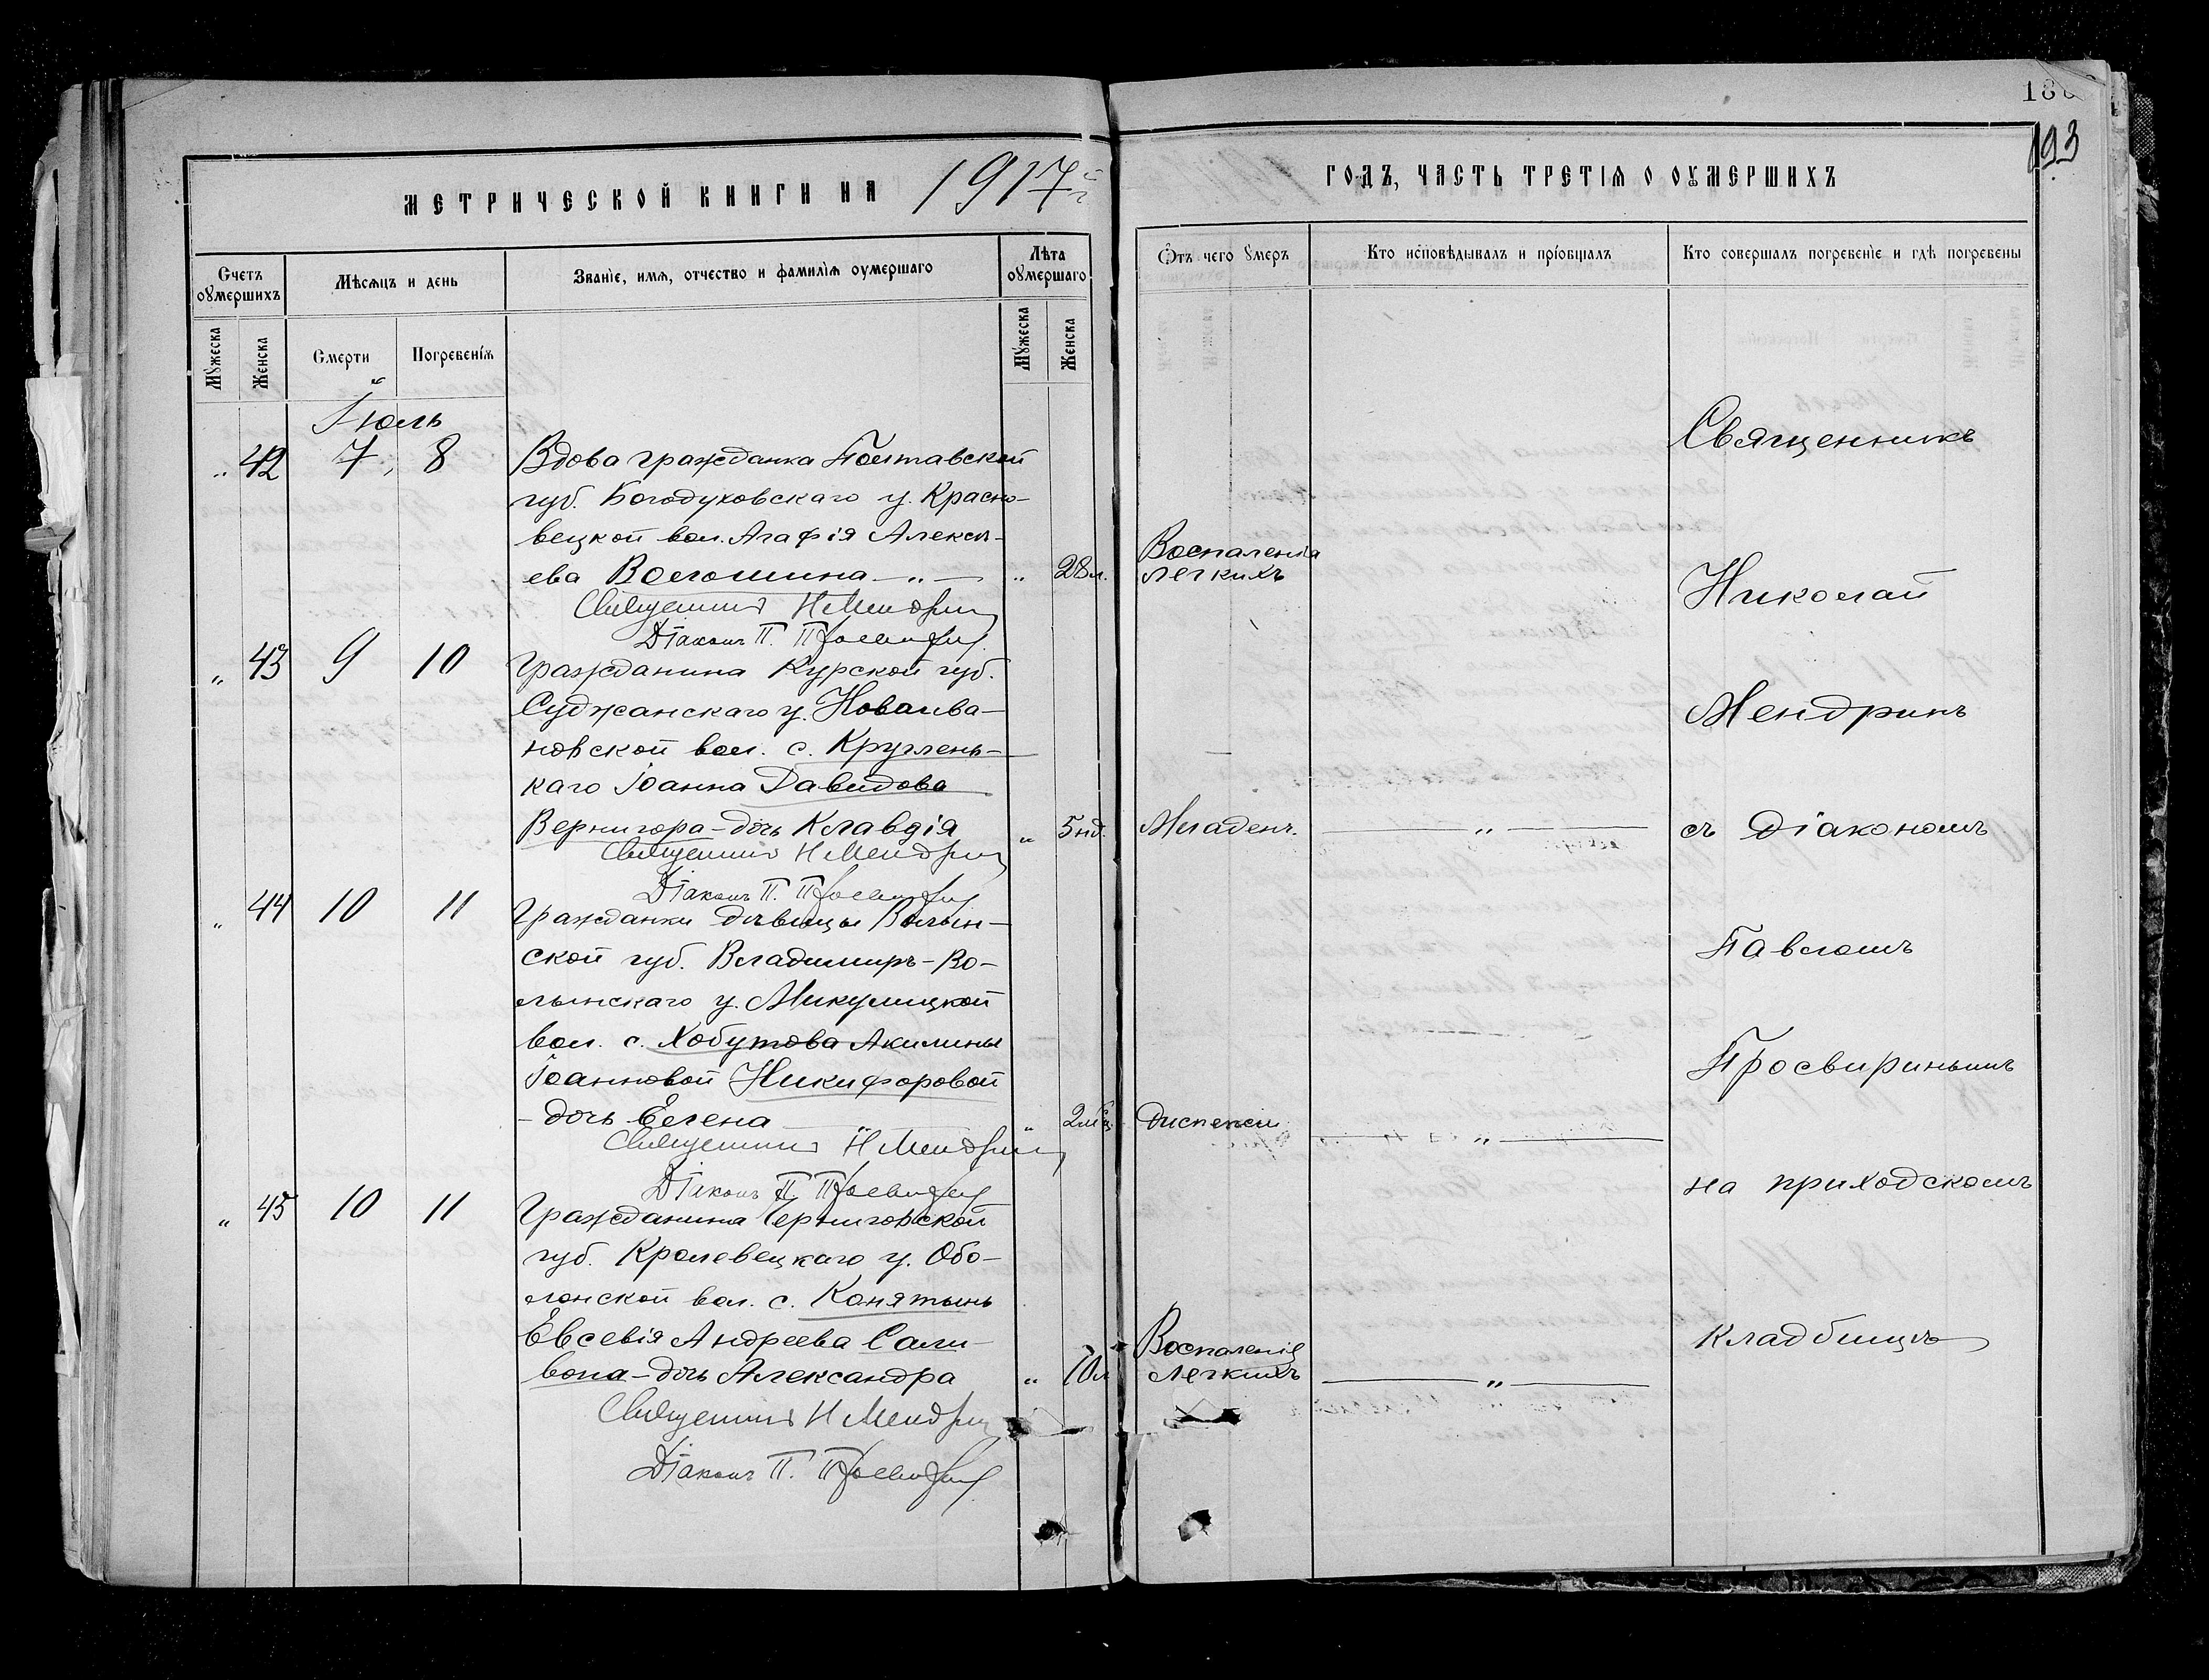 193
МЕТРИЧЕСКОЙ КНИГИ НА 1917й
ГОДЪ, ЧАСТЬ ТРЕТІЯ О ОУМЕРШИХЪ
Счетъ оумершихъ
Мѣсяцъ и день
Званіе, имя, отчество и фамилія оумершаго
Лѣта оумершаго
Отъ чего умеръ
Кто исповѣдывалъ и пріобщалъ
Кто совершалъ погребеніе и гдѣ погребены
Мужеска
Женска
Смерти
Погребенія
Мужеска
Женска
Іюль
" 42 7 8 Вдова гражданка Полтавской
губ. Богодуховскаго у. Красно-
вецкой вол. Агафія Алексѣ-
ева Волошина " " 28 л. Воспаленія легкихъ
Священникъ Н Мендринъ
Діаконъ П. Просвиринъ
" 43 9 10 Гражданина Курской губ.
Суджанскаго у. Новоива-
новской вол. с. Круглень-
каго Іоанна Давидова
Вернигора - дочь Клавдія " 5 нд. Младенч. "
Священникъ Н Мендринъ
Діаконъ П. Просвиринъ
" 44 10 11 Гражданки дѣвицы Волын-
ской губ. Владимиръ-Во-
лынскаго у. Микулицкой
вол. с. Хобутова Акилины
Іоанновой Никифоровой
- дочь Елена " " 2 мѣс. Диспепсіи "
Священникъ Н Мендринъ
Діаконъ П. Просвиринъ
" 45 10 11 Гражданина Черниговской
губ. Кролевецкаго у. Обо-
лонской вол. с. Конятынь
Евсевія Андреева Сали-
вона - дочь Александра " 10 л Воспаленіе Легкихъ "
Священникъ Н Мендринъ
Діаконъ П. Просвиринъ
Священникъ
Николай
Мендринъ
съ Діакономъ
Павломъ
Просвиринымъ
на приходскомъ
кладбищѣ